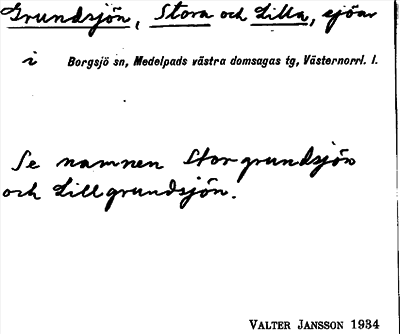 Grundsjön, Stora och Lilla, sjöar
i Borgsjö sn, Medelpads västra domsagas tg, Västernorrl. l.
Se namnen Storgrundsjön
och Lillgrundsjön.
VALTER JANSSON 1934